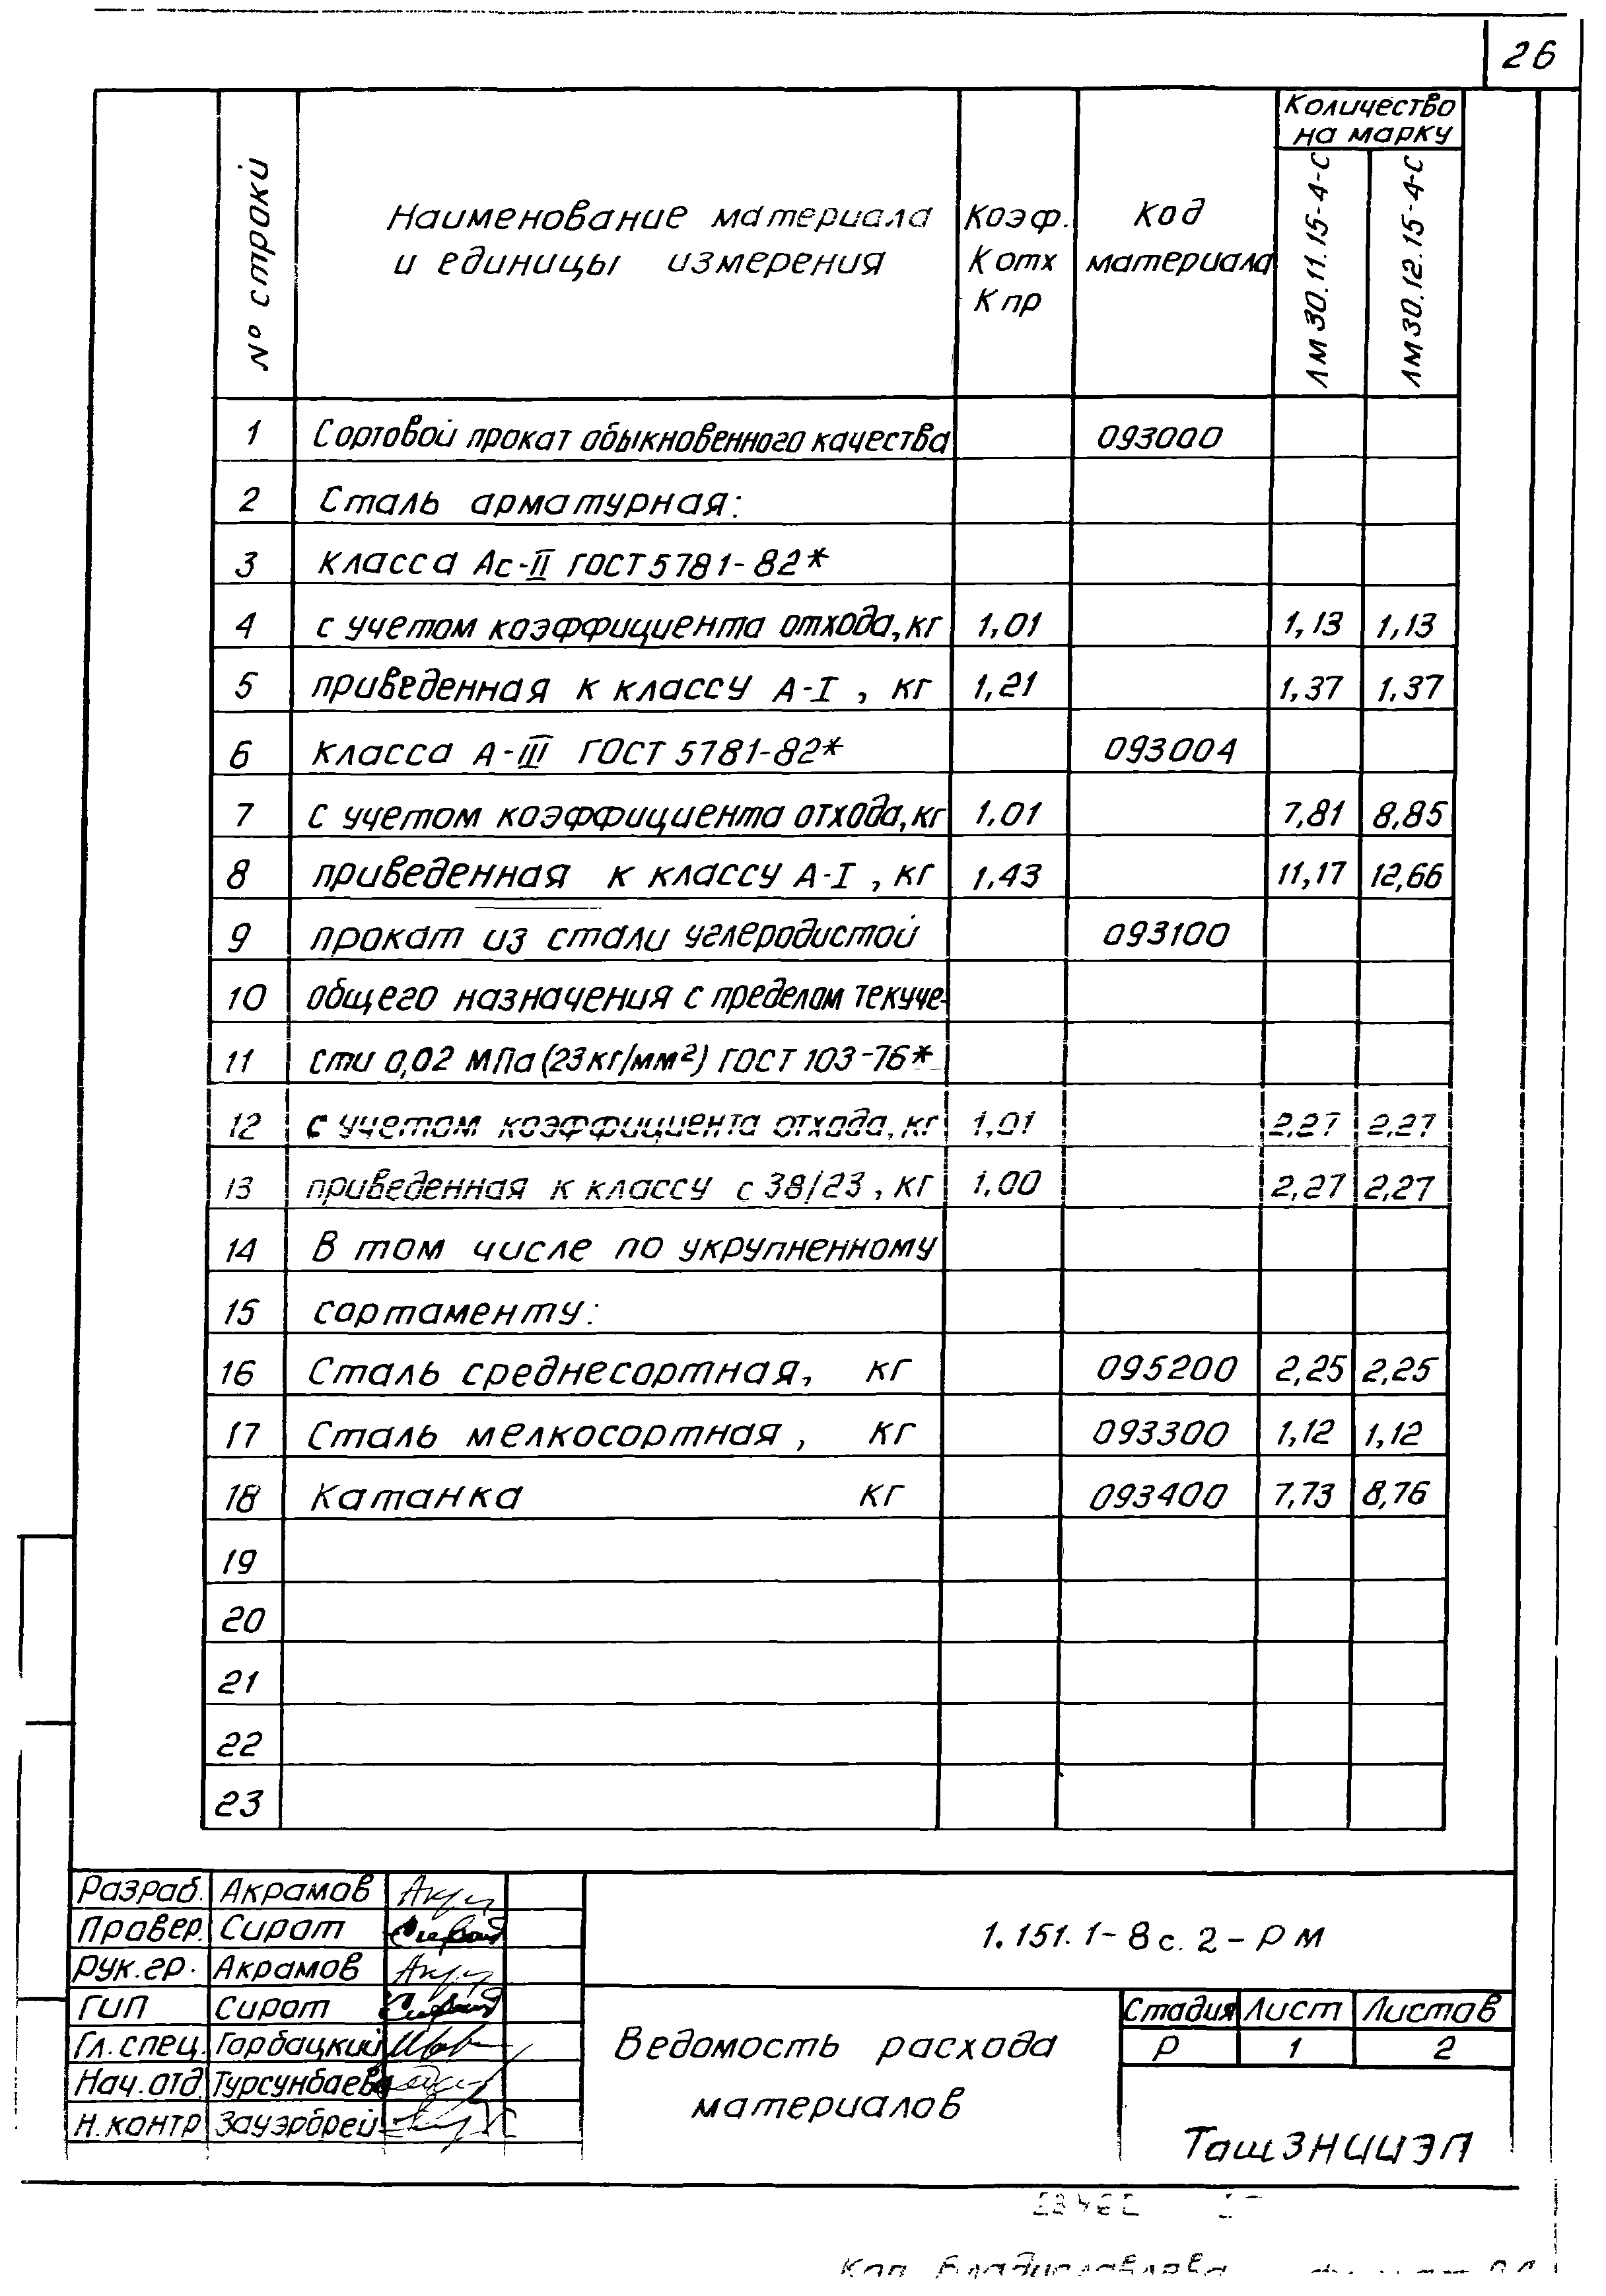 26
№ строки
Наименование материала
и единицы измерения
Коэф.
К отх
К пр
Код
материала
Количество
на марку
ЛМ 30.11.15-4-С
ЛМ 30.12.15-4-С
1 Сортовой прокат обыкновенного качества 093000
2 Сталь арматурная:
3 класса Ас-II ГОСТ 5781-82*
4 с учетом коэффициента отхода, кг 1,01 1,13 1,13
5 приведенная к классу А-I, кг 1,21 1,37 1,37
6 класса А-III ГОСТ 5781-82* 093004
7 с учетом коэффициента отхода, кг 1,01 7,81 8,85
8 приведенная к классу А-I, кг 1.43 11,17 12,66
9 прокат из стали углеродистой 093100
10 общего назначения с пределом текуче-
11 сти 0,02 МПа (23 кг/мм²) ГОСТ 103-76*
12 с учетом коэффициента отхода, кг 1,01 2,27 2,27
13 приведенная к классу с 38/23, кг 1,00 2,27 2,27
14 В том числе по укрупненному
15 сортаменту:
16 Сталь среднесортная, кг 095200 2,25 2,25
17 Сталь мелкосортная, кг 093300 1,12 1,12
18 Катанка кг 093400 7,73 8,76
19
20
21
22
23
Разраб. Акрамов
Провер. Сират
Рук.гр. Акрамов
ГИП Сират
Гл.спец. Горбацкий
Нач.отд. Турсунбаев
Н.контр Зауэрбрей
1.151.1-8с.2-РМ
Ведомость расхода
материалов
Стадия Лист Листов
Р 1 2
ТашЗНИИЭП